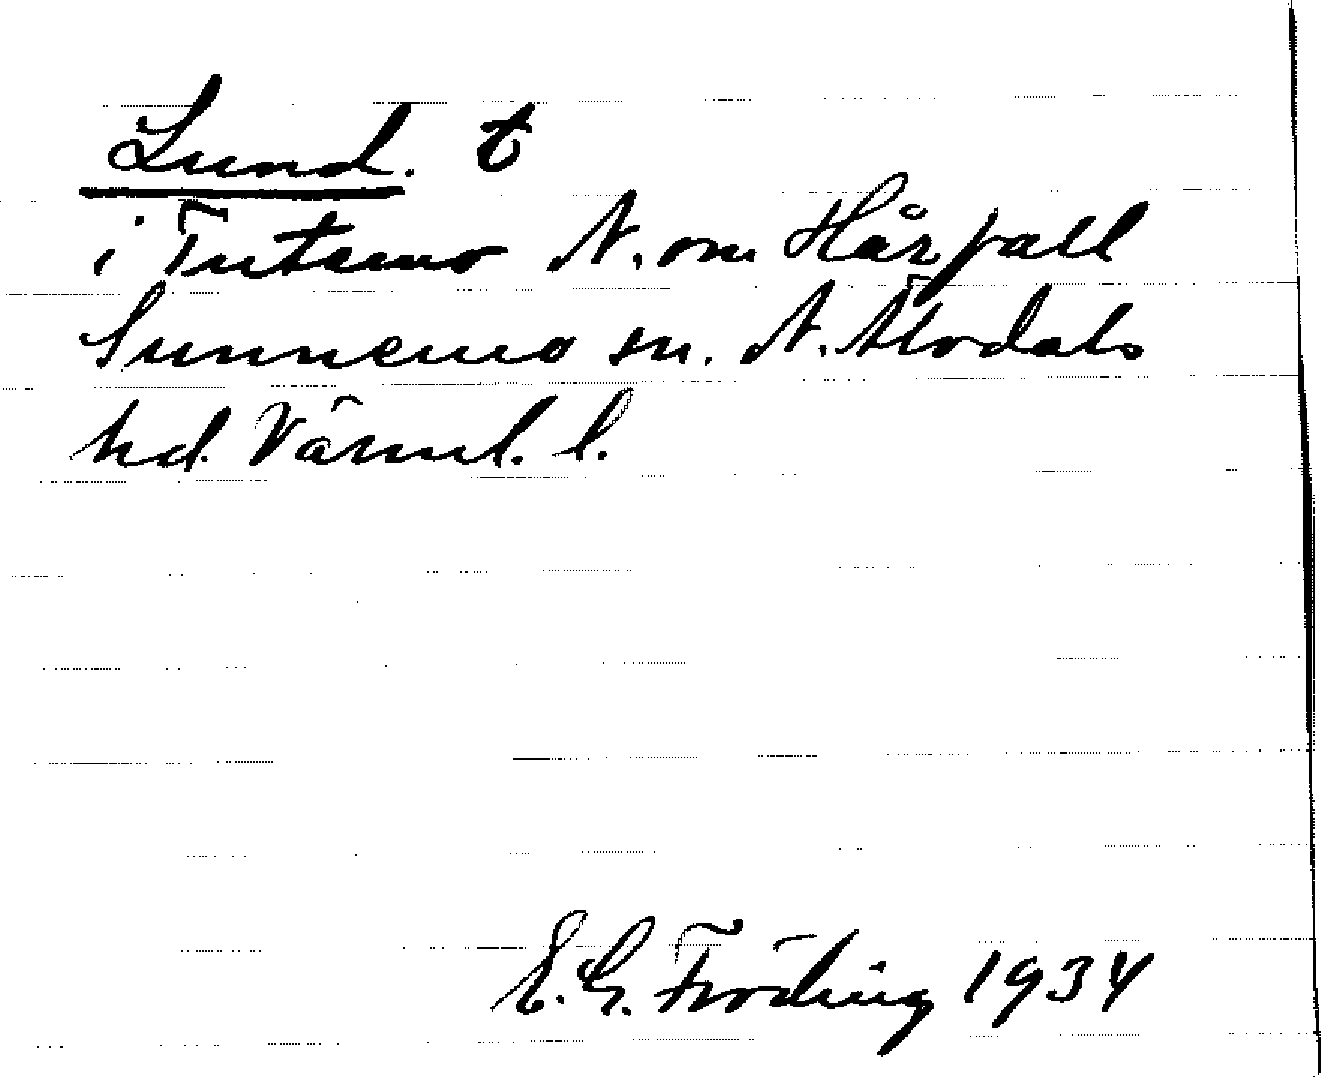 Lund. t
i Tutemo N. om Hårfall
Sunnemo sn. N. Älvdals
hd. Värml. l.
E. G. Fröding 1934